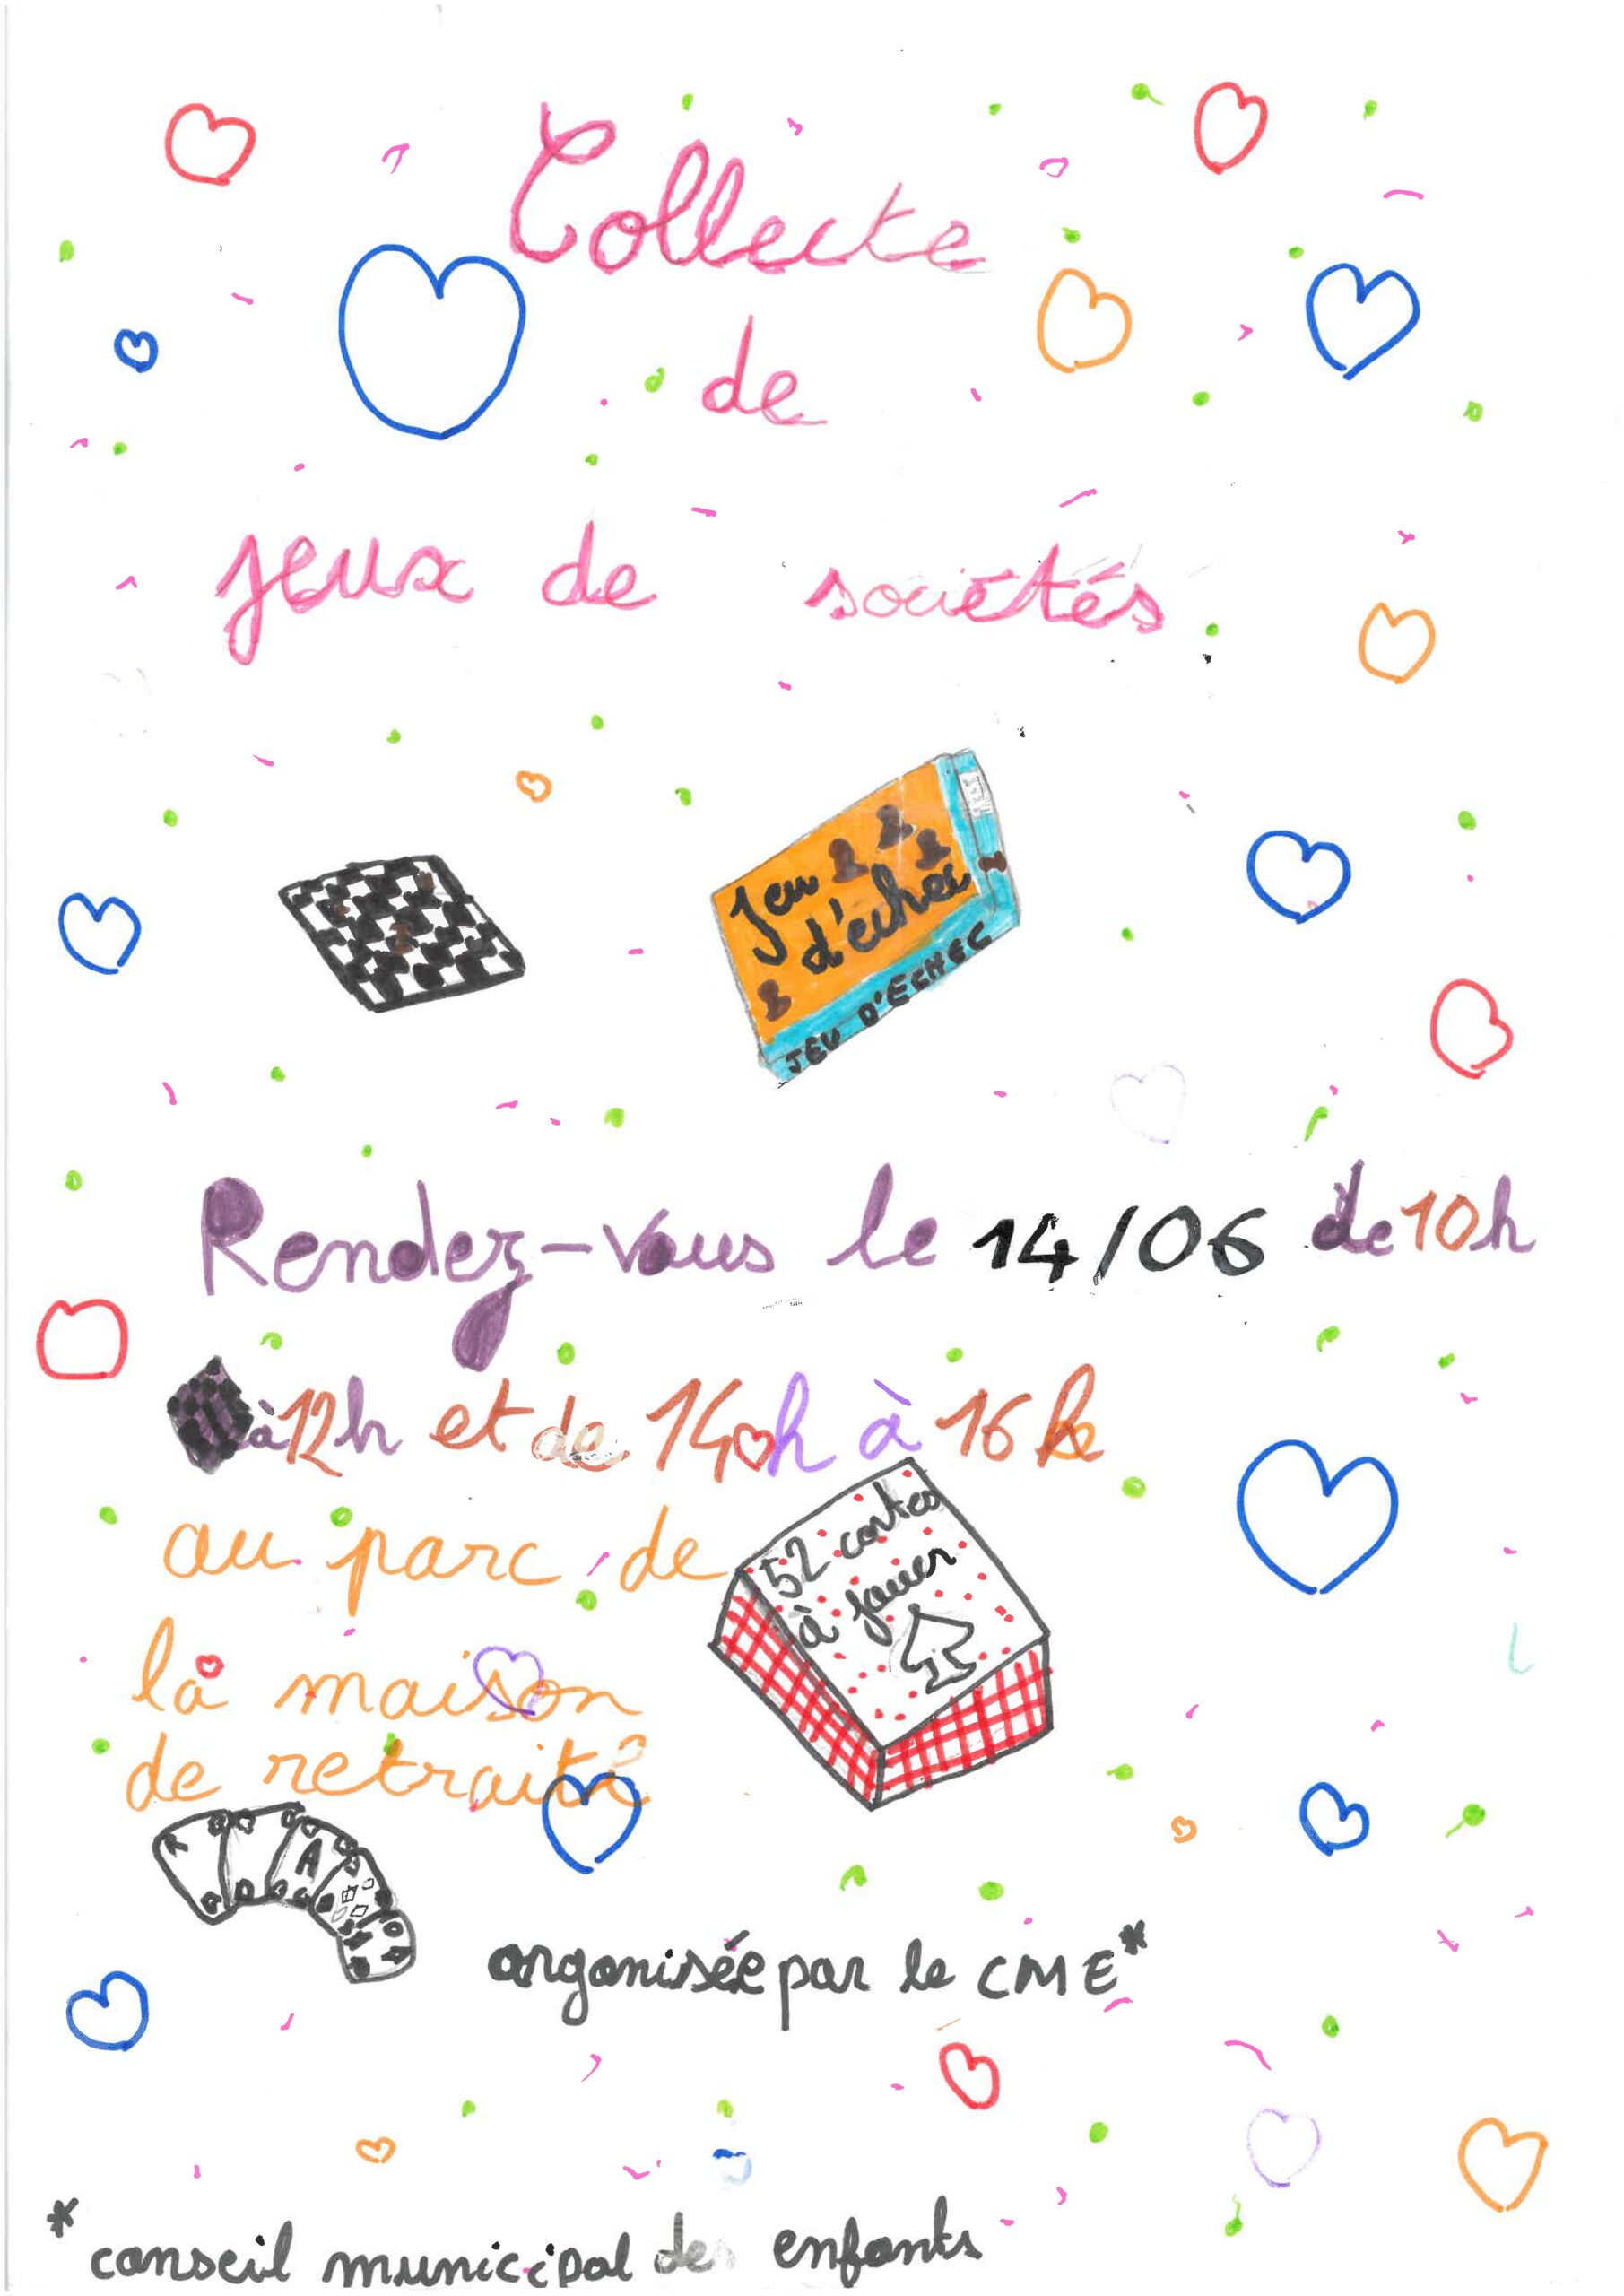 Collecte
de
jeux de sociétés
Jeu
d'echec
JEU D'ECHEC
Rendez-vous le 14/06 de 10h
à 12h et de 14h à 16h
au parc de
la maison
de retraite
52 cartes
à jouer
A
organisée par le CME*
*conseil municipal des enfants